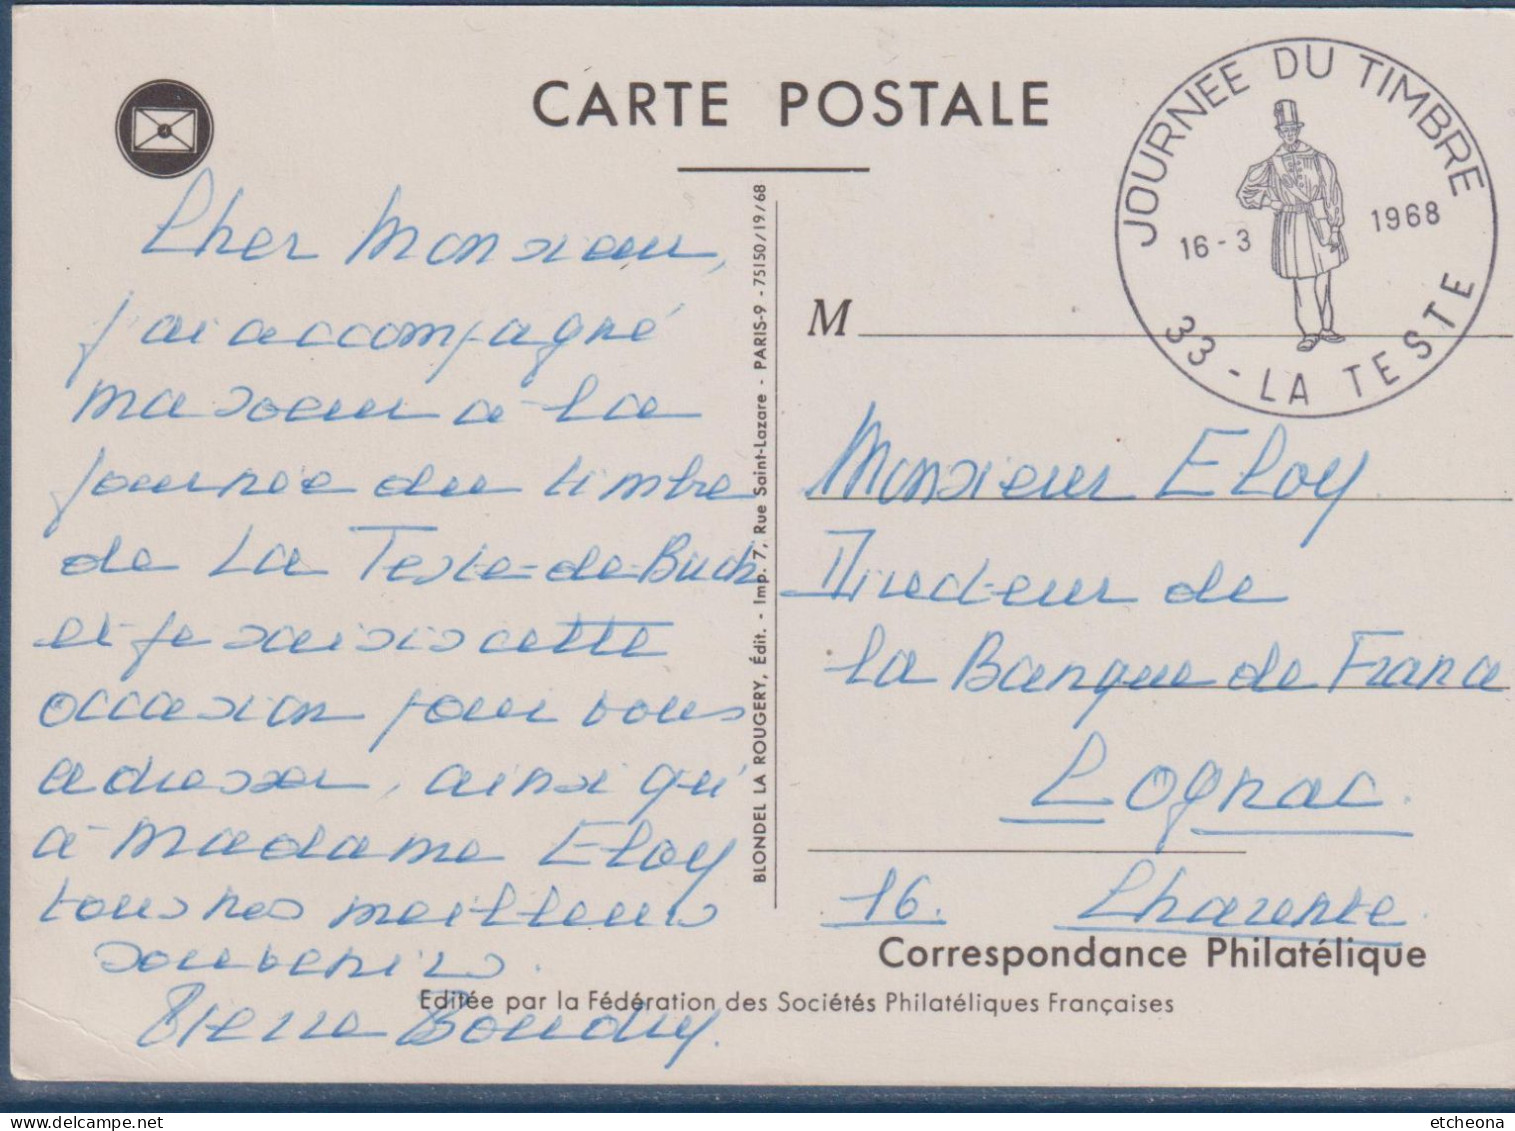 CARTE POSTALE
JOURNEE DU TIMBRE
16-3 1968
33-LA TESTE
Cher Monsieur,
j'ai accompagné
ma soeur à la
journée du timbre
de La Teste-de-Buch
et je saisis cette
occasion pour vous
adresser, ainsi qu'
à Madame Eloy
tous nos meilleurs
souvenirs.
Pierre
BLONDEL LA ROUGERY, Édit. - Imp. 7, Rue Saint-Lazare - PARIS-9 - 75150/19/68
M
Monsieur Eloy
Directeur de
la Banque de France
Cognac.
16. Charente.
Correspondance Philatélique
Editée par la Fédération des Sociétés Philatéliques Françaises
etcheona